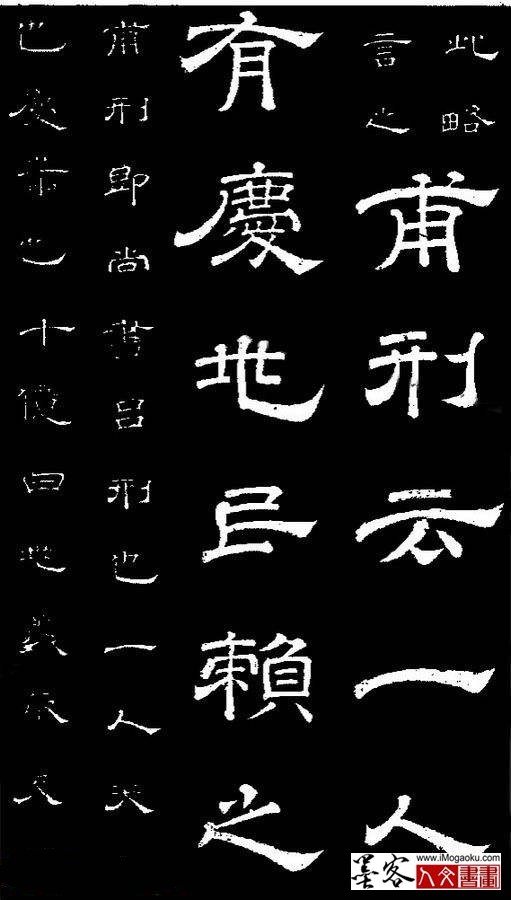 此略
言之
甫刑云一人
有慶兆民賴之
甫刑即尚書呂刑也一人天
也慶善也十億曰兆義取天
墨客
www.iMogaoku.com
人文書畫